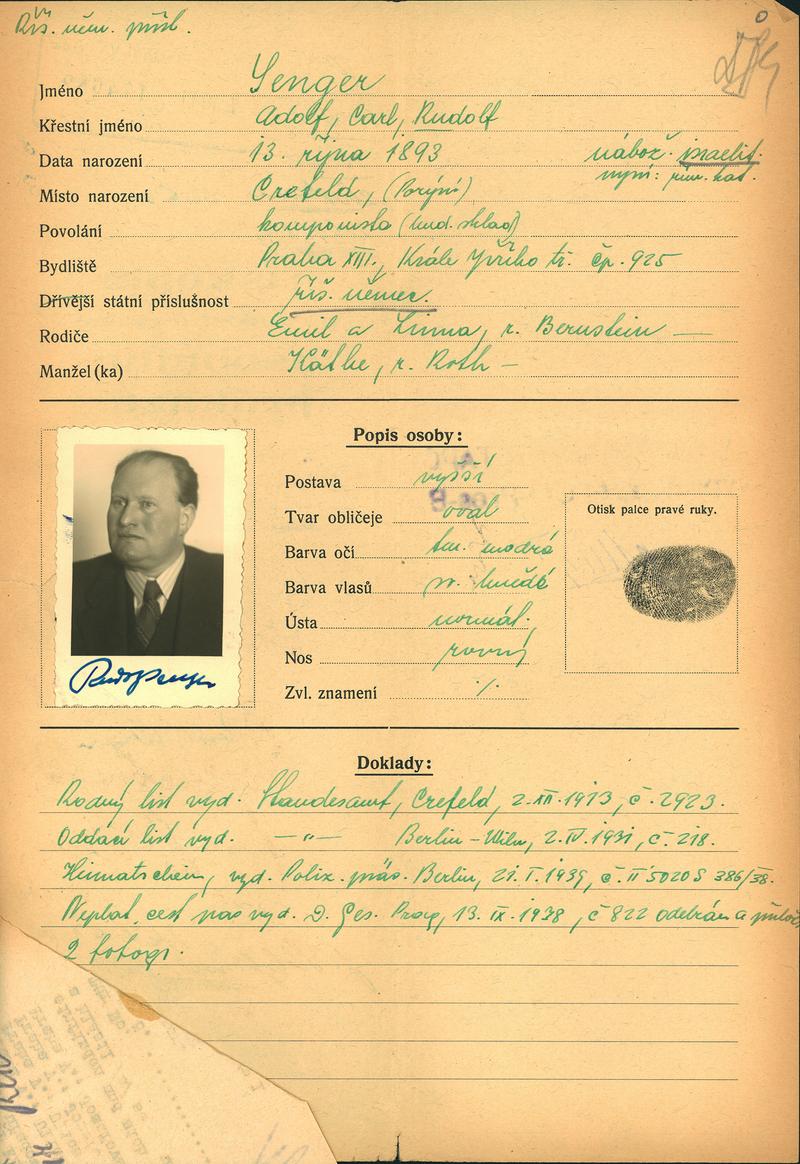 Říš. něm. přísl.
Jméno Senger
Křestní jméno Adolf, Carl, Rudolf
Data narození 13. října 1893 nábož. israelit.
nyní: řím. kat.
Místo narození Crefeld, (Porýní)
Povolání komponista (hud. sklad)
Bydliště Praha XIII., Krále Jiřího tř. čp. 925
Dřívější státní příslušnost říš. němec.
Rodiče Emil a Linna, r. Bernstein —
Manžel(ka) Käthe, r. Roth —
Popis osoby:
Postava vyšší
Tvar obličeje oval
Barva očí tm. modrá
Barva vlasů sv. hnědé
Ústa normál.
Nos rovný
Zvl. znamení ./.
Otisk palce pravé ruky.
Doklady:
Rodný list vyd. Standesamt, Crefeld, 2. XII. 1913, č. 2923.
Oddací list vyd. —〃— Berlin - Wilm, 2. IV. 1931, č. 218.
Heimatschein, vyd. Poliz. präs. Berlin, 21. I. 1939, č. II 5020 S 386/38.
Neplat. cest pas vyd. D. Ges. Prag, 13. IX. 1938, č 822 odebrán a
2 fotogr.